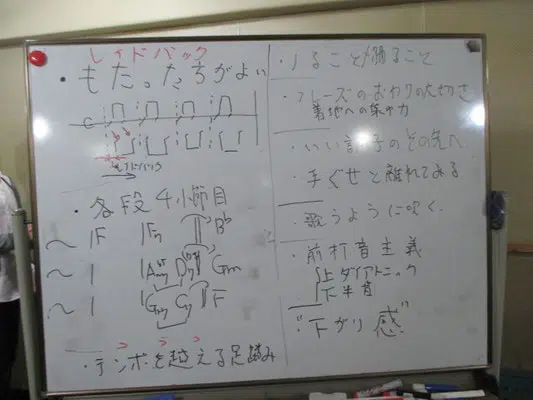 レイドバック
・もたったちがよい
C
レイドバック
・各段4小節目
〜 | F | F7 || B♭
〜 | | Am7 D7 || Gm
〜 | | Gm7 C7 || F
・テンポを越える足踏み
・ノること/踊ること
・フレーズのおわりの大切さ
着地への集中力
・いい調子のその先へ
・手ぐせと離れてみる
・歌うように吹く.
・前打音主義
上ダイアトニック
下半音
"下がり感"